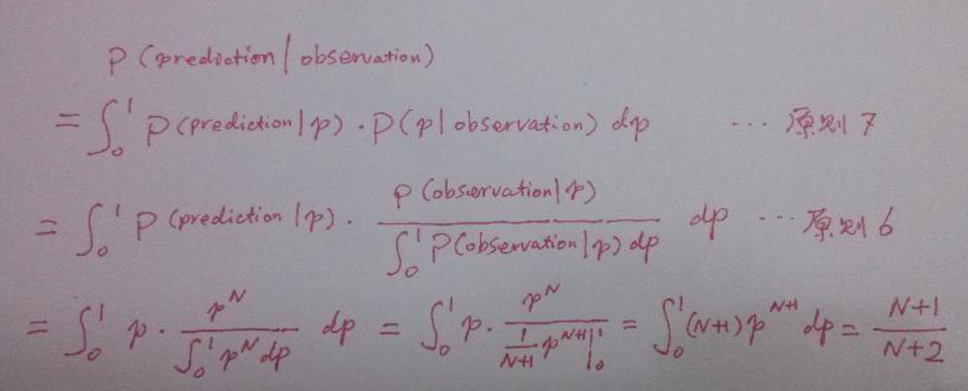 P(prediction|observation)
= ∫₀¹ P(prediction|p) · P(p|observation) dp ··· 原则7
= ∫₀¹ P(prediction|p) · P(observation|p) / ∫₀¹ P(observation|p) dp dp ··· 原则6
= ∫₀¹ p · p^N / ∫₀¹ p^N dp dp = ∫₀¹ p · p^N / (1/(N+1) p^(N+1)|₀¹) = ∫₀¹ (N+1) p^(N+1) dp = (N+1)/(N+2)